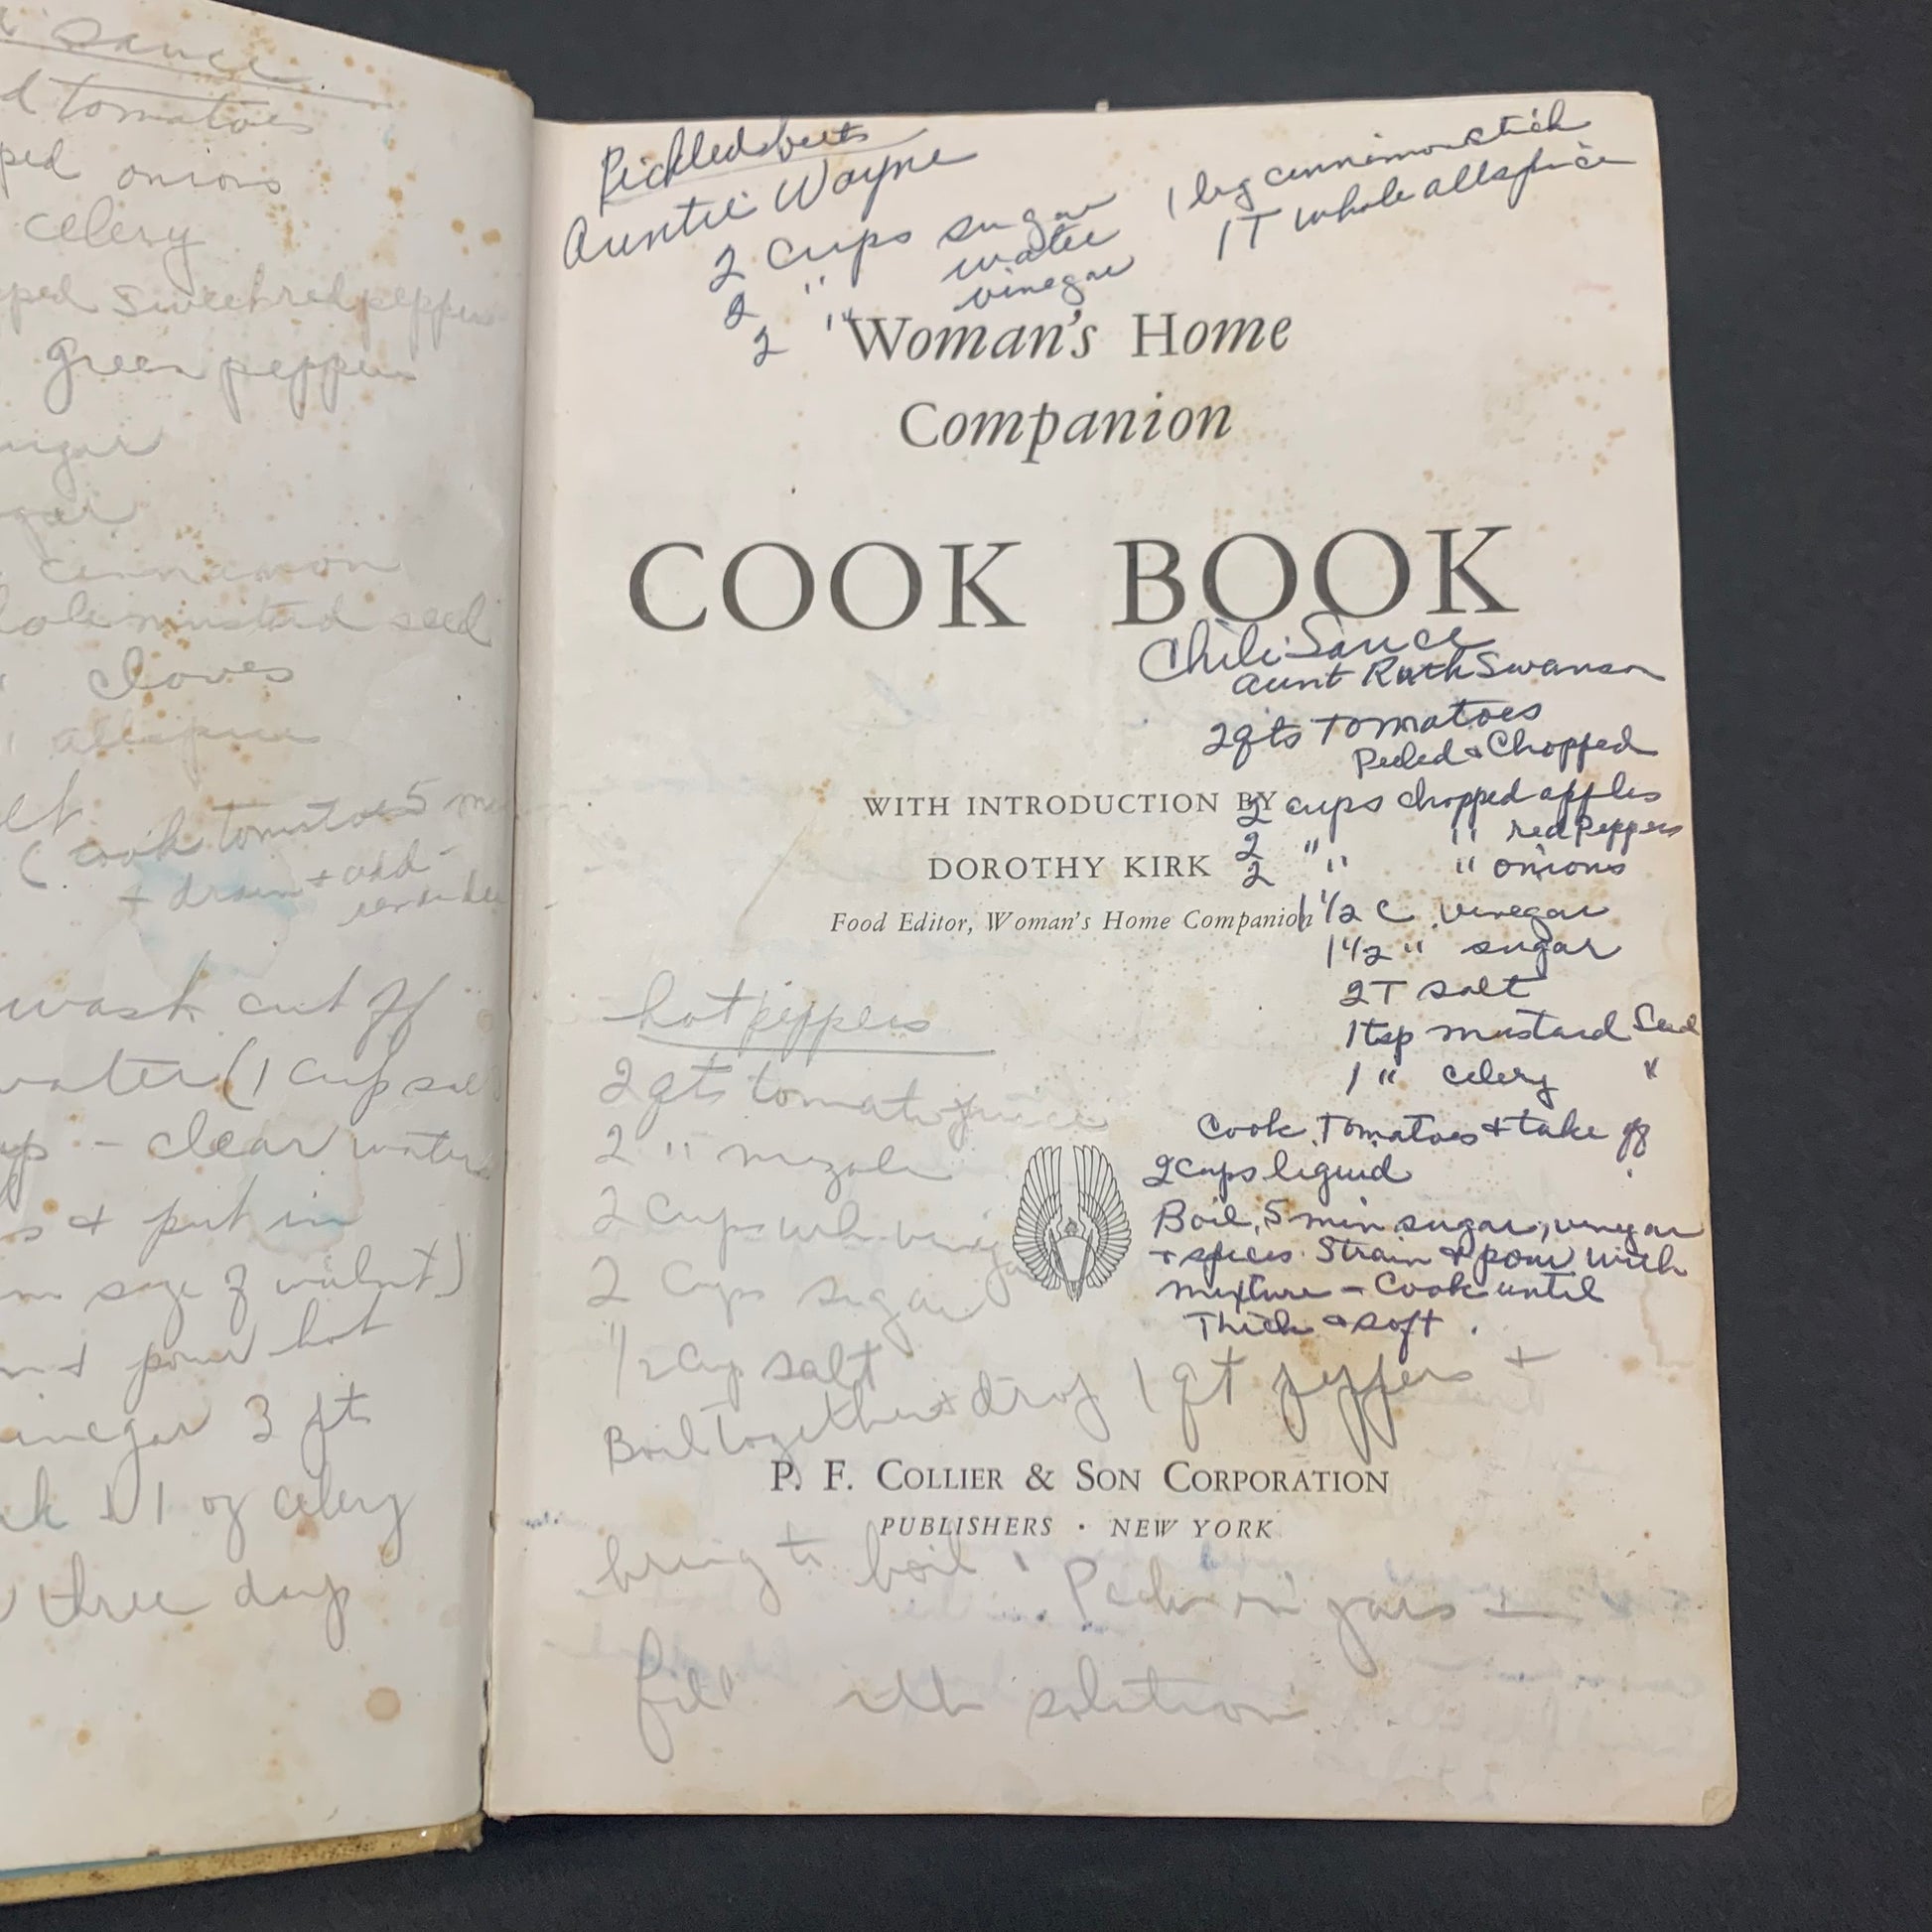 sauce
d tomatoes
ped onions
celery
pped sweet red pepper
green peppers
ugar
gar
cinnamon
hole mustard seed
" cloves
" allspice
lt
(cook tomatoes 5 m
+ drain + add
wash cut off
water (1 cup sal
up - clear water
s + put in
m size of walnut)
n + pour hot
inegar 3 pts
1 oz celery
three days
Pickled beets
Auntie Wayne
2 cups sugar
2 " water
2 " vinegar
1 leg cinnimon stick
1 T whole allspice
Woman's Home
Companion
COOK BOOK
Chili Sauce
Aunt Ruth Swanson
2 qts Tomatoes
Peeled & Chopped
WITH INTRODUCTION BY
DOROTHY KIRK
Food Editor, Woman's Home Companion
2 cups chopped apples
2 " " red Peppers
2 " " onions
1 1/2 C vinegar
1 1/2 " sugar
2 T salt
1 tsp mustard Seed
1 " celery "
Cook Tomatoes + take off
2 cups liquid
Boil 5 min sugar, vinegar
+ spices. Strain + pour with
mixture - Cook until
Thick & soft.
hot peppers
2 qts tomato juice
2 " mazola
2 cups wh vinegar
2 cups sugar
1/2 cup salt
Boil together + drop 1 qt peppers +
P. F. COLLIER & SON CORPORATION
PUBLISHERS · NEW YORK
bring to boil. Pack in jars -
fill with solution